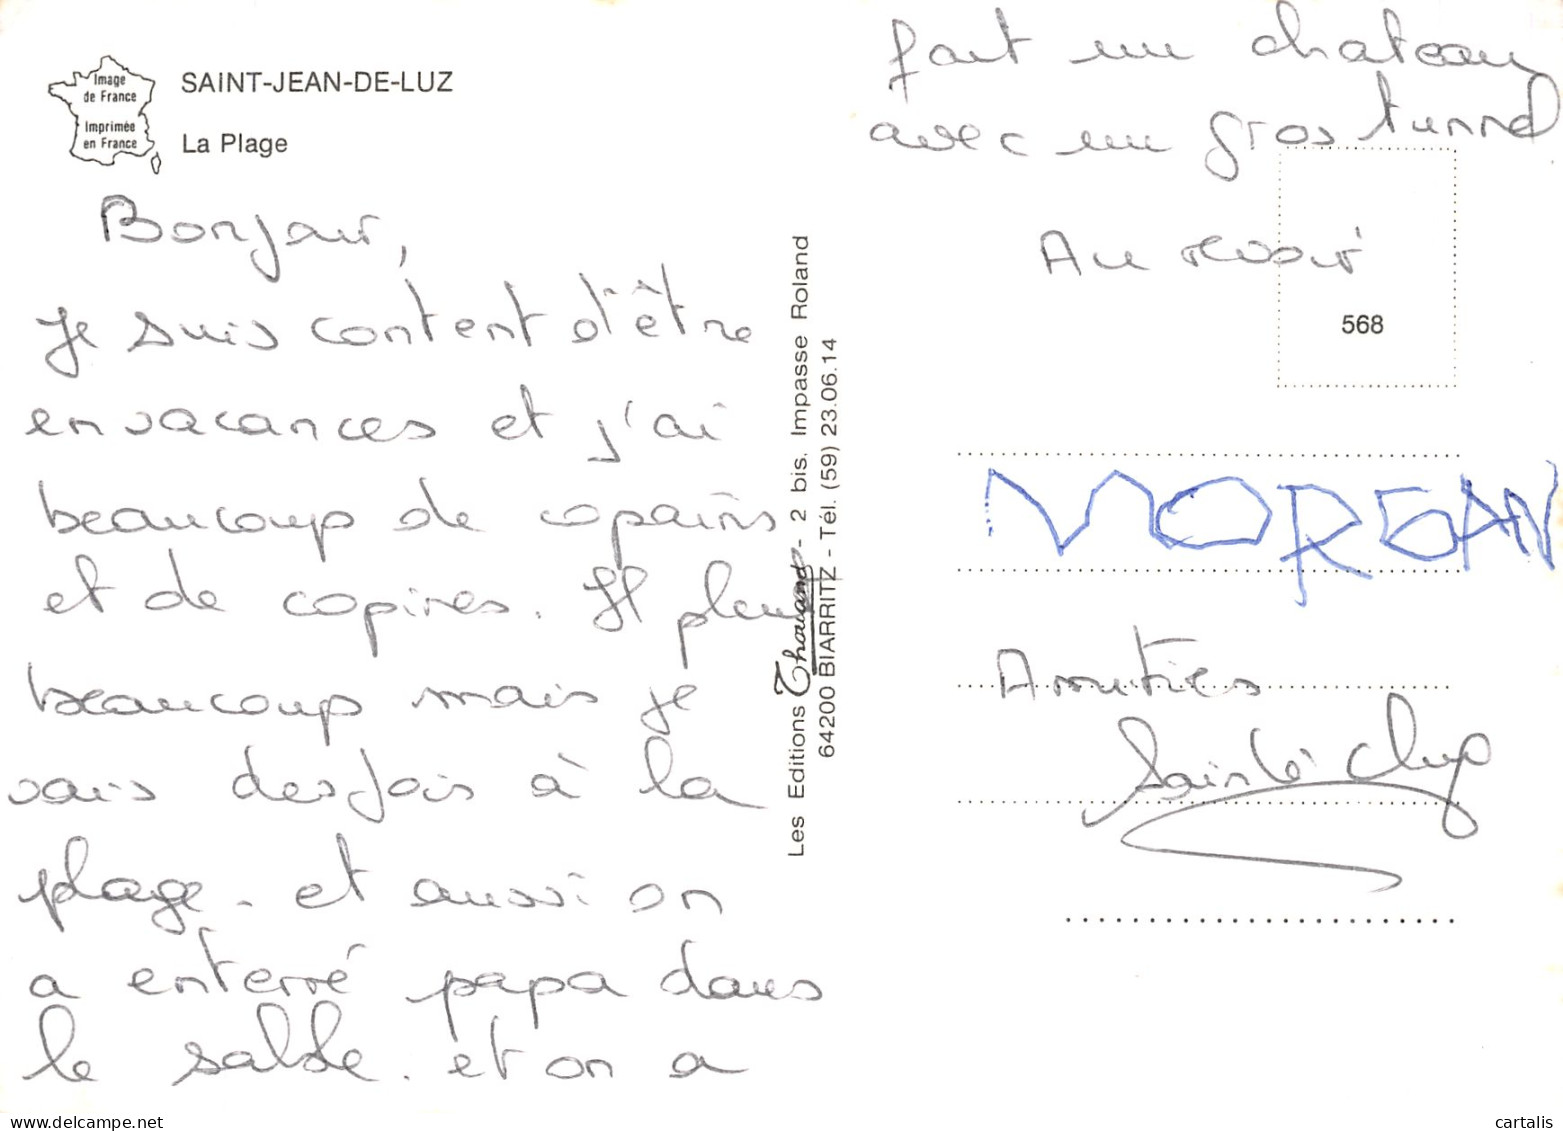 Image
de France
Imprimée
en France
SAINT-JEAN-DE-LUZ
La Plage
Bonjour,
Je suis content d'être
en vacances et j'ai
beaucoup de copains
et de copines. Il pleut
beaucoup mais je
vais desfois à la
plage. et aussi on
a enterré papa dans
le sable. et on a
Les Editions Thouand - 2 bis. Impasse Roland
64200 BIARRITZ - Tél. (59) 23.06.14
fait un chateau
avec un gros tunnel
Au revoir
568
MORGAN
Amitiés
cartalis